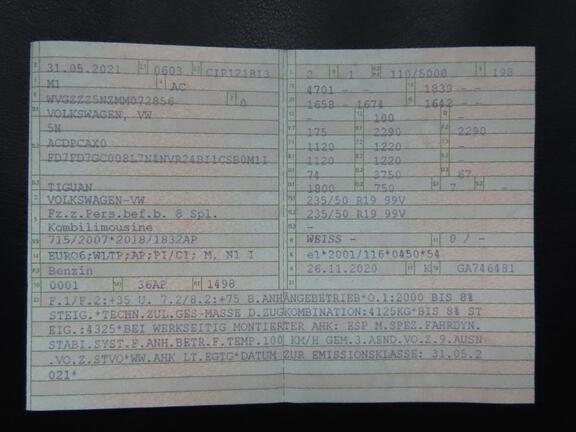 31.05.2021 0603 CIR121813
M1 AC
WVGZZZ5NZMM072856 0
VOLKSWAGEN, VW
5N
ACDPCAX0
FD7FD7GC008L7N4NVR24BI1CSB0M1I
TIGUAN
VOLKSWAGEN-VW
Fz.z.Pers.bef.b. 8 Spl.
Kombilimousine
715/2007*2018/1832AP
EURO6;WLTP;AP;PI/CI; M, N1 I
Benzin
0001 36AP 1498
2 1 110/5000 198
4701 - - 1839 -
1658 - 1674 1642 -
- 100 -
175 2290 2290
1120 1220 -
1120 1220 -
74 3750 67
1800 750 7 -
235/50 R19 99V
235/50 R19 99V
-
WEISS - 0 / -
e1*2001/116*0450*54
26.11.2020 K GA746481
F.1/F.2:+35 U. 7.2/8.2:+75 B.ANHÄNGEBETRIEB*O.1:2000 BIS 8%
STEIG.*TECHN.ZUL.GES-MASSE D.ZUGKOMBINATION:4125KG*BIS 8% ST
EIG.:4325*BEI WERKSEITIG MONTIERTER AHK: ESP M.SPEZ.FAHRDYN.
STABI.SYST.F.ANH.BETR.F.TEMP.100 KM/H GEM.3.AEND.VO.Z.9.AUSN
.VO.Z.STVO*WW.AHK LT.EGTG*DATUM ZUR EMISSIONSKLASSE: 31.05.2
021*